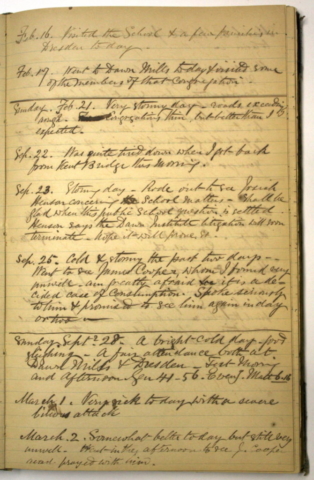 Feb. 16. Visited the School & a few families in
Dresden to day.
Feb. 19. Went to Dawn Mills to day & visited some
of the members of that Congregation.
Sunday. Feb. 21. Very stormy day - roads exceeding
Congregations thin, but better than I
expected.
Sep. 22. Was quite tired down when I got back
from Kent Bridge this morning.
Sep. 23. Stormy day - Rode out to see Josiah
Henson concerning School matters - Shall be
glad when this public School question is settled.
Henson says the Dawn Institute litigation will soon
terminate - hope it will prove so.
Sep. 25. Cold & stormy the past two days -
Went to see James Cooper, whom I found very
unwell - am greatly afraid it is a de-
cided case of Consumption. Spoke seriously
to him & promised to see him again in a day
or two
Sunday, Sept. 28. A bright cold day - good
sleighing - A fair attendance both at
Dawn Mills & Dresden - Text Morning
and Afternoon Gen 44-56. Even.
March 1. Very sick to day with a severe
bilious attack
March. 2. Somewhat better to day but still very
unwell - Went in the afternoon to see J. Cooper
read & prayed with him.